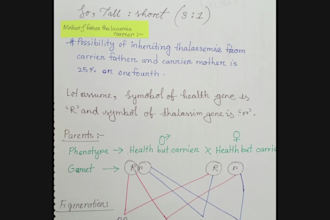 So, Tall : short (3:1)
Mother & father thalassemia carrier :-
# Possibility of inheriting thalassemia from
carrier father and carrier mother is
25% or one fourth.
Let assume, symbol of health gene is
'R' and symbol of thalassim gene is 'r'.
Parents :-
♂ ♀
Phenotype → Health but carrier × Health but carri
Gamet → R r R r
F₁ generation: